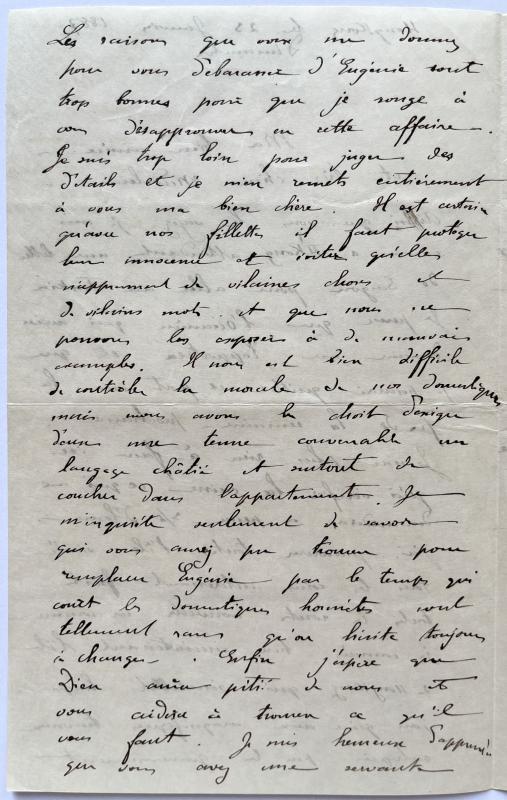 Les raisons que vous me donnez
pour vous débarrasser d'Eugénie sont
trop bonnes pour que je songe à
vous désapprouver en cette affaire.
Je suis trop loin pour juger des
détails et je m'en remets entièrement
à vous ma bien chère. Il est certain
qu'avec nos fillettes il faut protéger
leur innocence et éviter qu'elles
n'apprennent de vilaines choses et
de vilains mots et que nous ne
pouvons les exposer à de mauvais
exemples. Il nous est bien difficile
de contrôler la morale de nos domestiques
mais nous avons le droit d'exiger
d'eux une tenue convenable un
langage châtié et surtout de
coucher dans l'appartement. Je
m'inquiète seulement de savoir
qui vous aurez pu trouver pour
remplacer Eugénie par le temps qui
court les domestiques honnêtes sont
tellement rares qu'on hésite toujours
à changer. Enfin j'espère que
Dieu aura pitié de nous et
vous aidera à trouver ce qu'il
vous faut. Je suis heureuse d'apprendre
que vous avez une servante